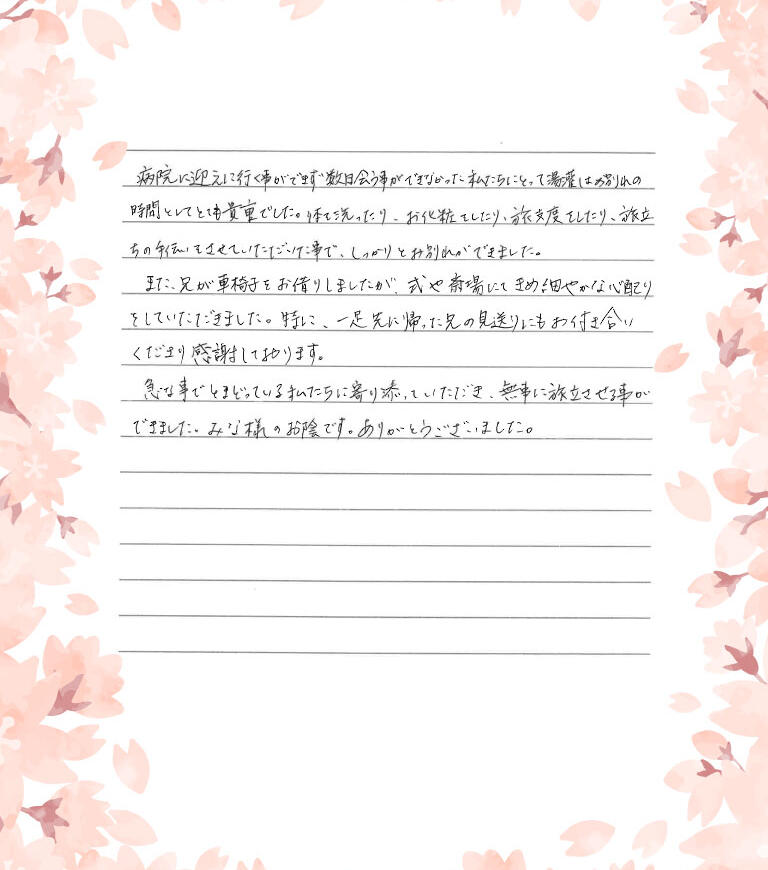 病院に迎えに行く事ができず数日会う事ができなかった私たちにとって湯灌はお別れの
時間としてとても貴重でした。体を洗ったり、お化粧をしたり、旅支度をしたり、旅立
ちの手伝いをさせていただいた事で、しっかりとお別れができました。
また、兄が車椅子をお借りしましたが、式や斎場にてきめ細やかな心配り
をしていただきました。特に、一足先に帰った兄の見送りにもお付き合い
くださり感謝しております。
急な事でとまどっている私たちに寄り添っていただき、無事に旅立させる事が
できました。みな様のお陰です。ありがとうございました。